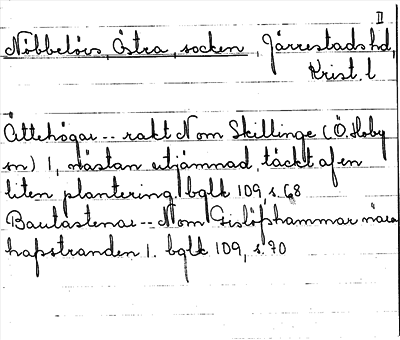 II
Nöbbelövs, Östra, socken, Järrestads hd,
Krist. l
Ättehögar -- rakt N om Skillinge (Ö. Hoby
sn) 1, nästan utjämnad, täckt af en
liten plantering. bglk 109, s. 68
Bautastenar -- N om Gislöfshammar nära
hafsstranden 1. bglk 109, s. 70